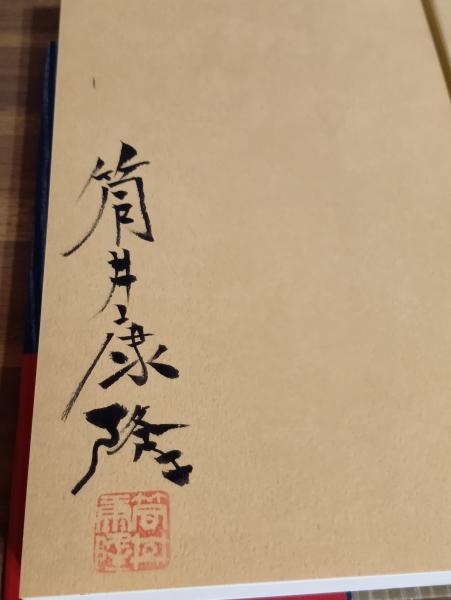 筒井康隆
筒井
康隆